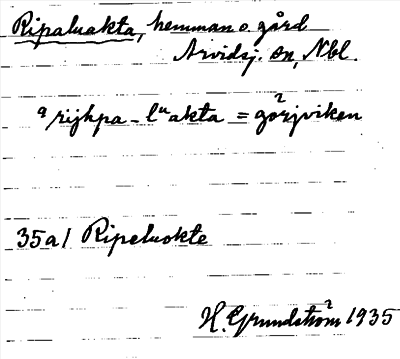 Ripaluakta, hemman o. gård
Arvidsj. sn, Nbl.
a rijhpa - luakta = gorjviken
35a/ Ripeluokte
H. Grundström 1935